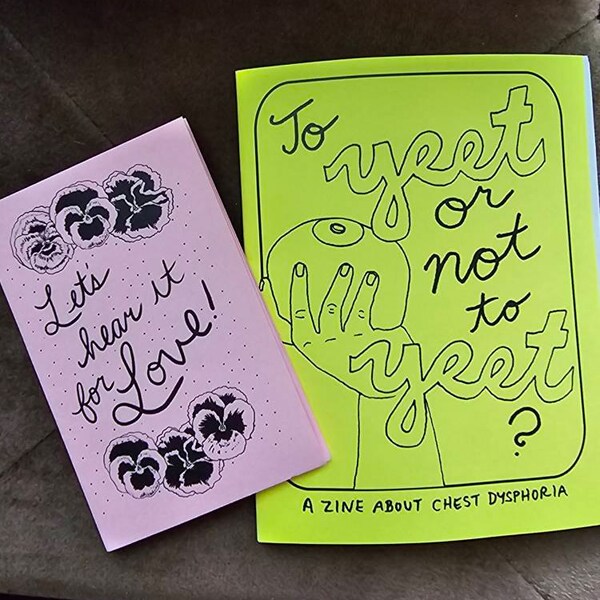 Lets
hear it
for Love!
To yeet
or
not
to
yeet
?
A ZINE ABOUT CHEST DYSPHORIA